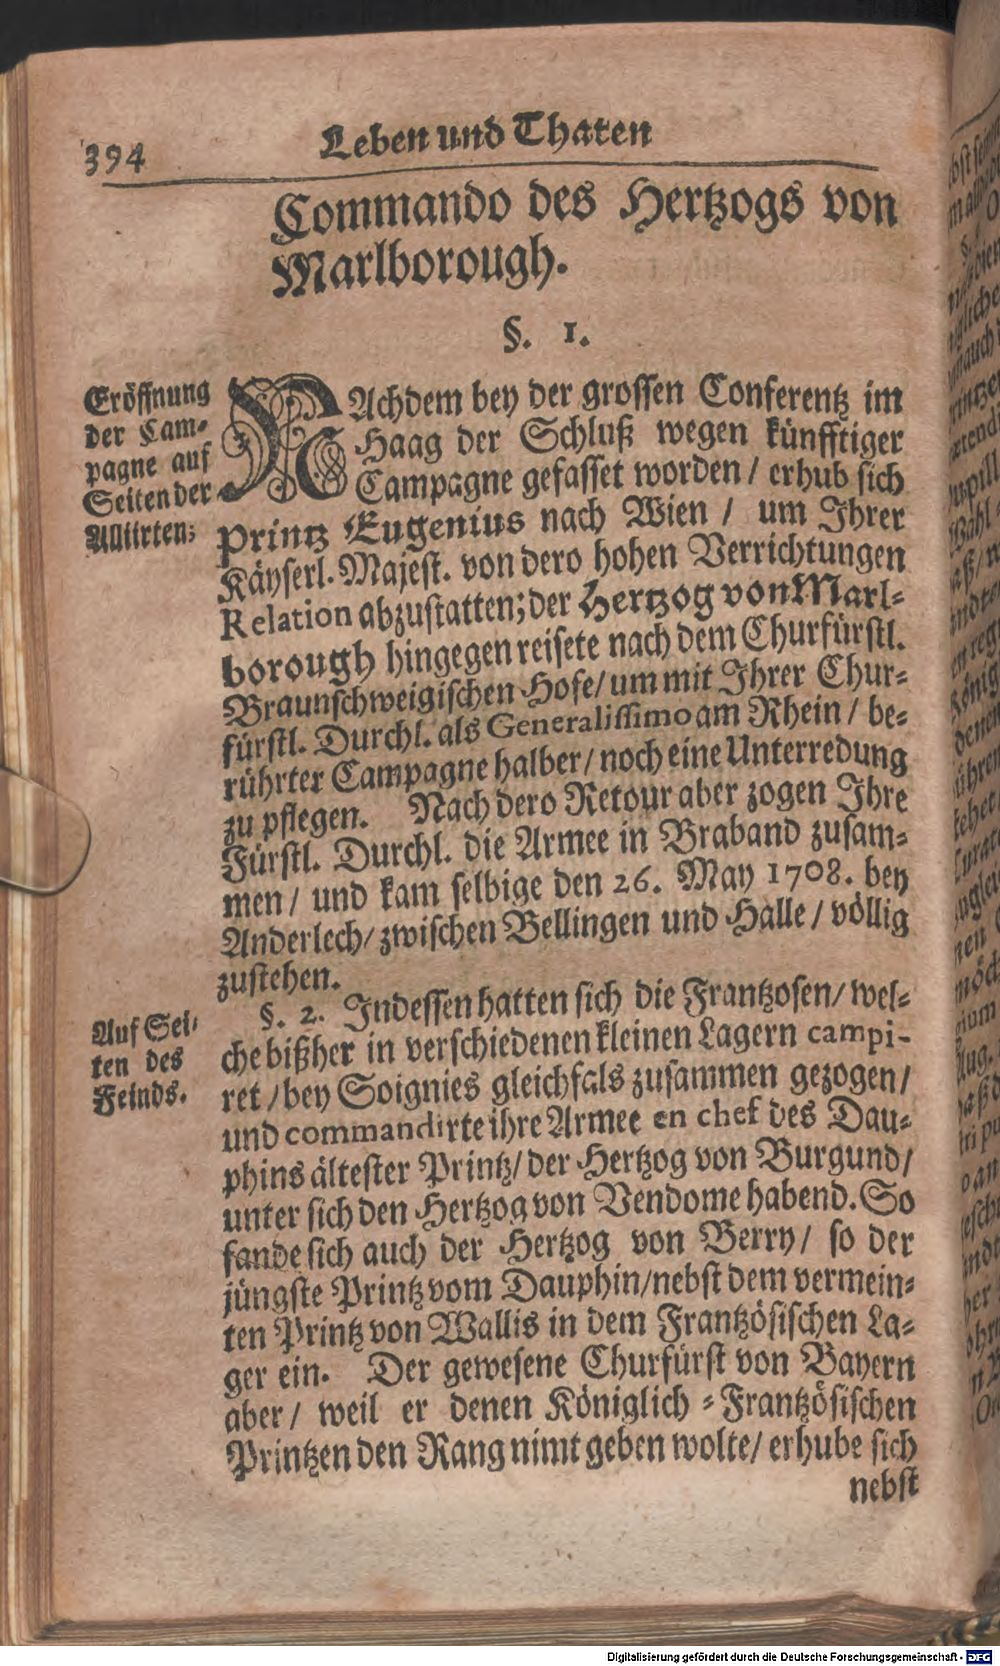 394
Leben und Thaten
Commando des Hertzogs von
Marlborough.
§. 1.
Eröffnung
der Cam-
pagne auf
Seiten der
Alliirten;
NAchdem bey der grossen Conferentz im
Haag der Schluß wegen künfftiger
Campagne gefasset worden / erhub sich
Printz Eugenius nach Wien / um Ihrer
Käyserl. Majest. von dero hohen Verrichtungen
Relation abzustatten; der Hertzog von Marl-
borough hingegen reisete nach dem Churfürstl.
Braunschweigischen Hofe / um mit Ihrer Chur-
fürstl. Durchl. als Generalissimo am Rhein / be-
rührter Campagne halber / noch eine Unterredung
zu pflegen. Nach dero Retour aber zogen Ihre
Fürstl. Durchl. die Armee in Braband zusam-
men / und kam selbige den 26. May 1708. bey
Anderlech / zwischen Bellingen und Halle / völlig
zustehen.
Auf Sei-
ten des
Feinds.
§. 2. Indessen hatten sich die Frantzosen / wel-
che bißher in verschiedenen kleinen Lagern campi-
ret / bey Soignies gleichfals zusammen gezogen /
und commandirte ihre Armee en chef des Dau-
phins ältester Printz / der Hertzog von Burgund /
unter sich den Hertzog von Vendome habend. So
fande sich auch der Hertzog von Berry / so der
jüngste Printz vom Dauphin / nebst dem vermein-
ten Printz von Wallis in dem Frantzösischen La-
ger ein. Der gewesene Churfürst von Bayern
aber / weil er denen Königlich-Frantzösischen
Printzen den Rang nimt geben wolte / erhube sich
nebst
Digitalisierung gefördert durch die Deutsche Forschungsgemeinschaft - DFG